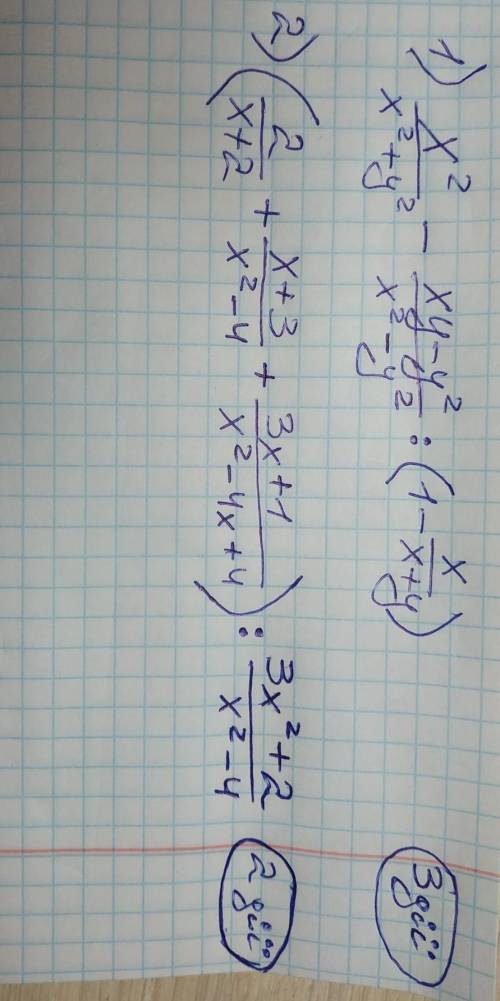 1) x²/(x²+y²) − (xy−y²)/(x²−y²) : (1 − x/(x+y)) 3дії
2) (2/(x+2) + (x+3)/(x²−4) + (3x+1)/(x²−4x+4)) : (3x²+2)/(x²−4) 2 дії